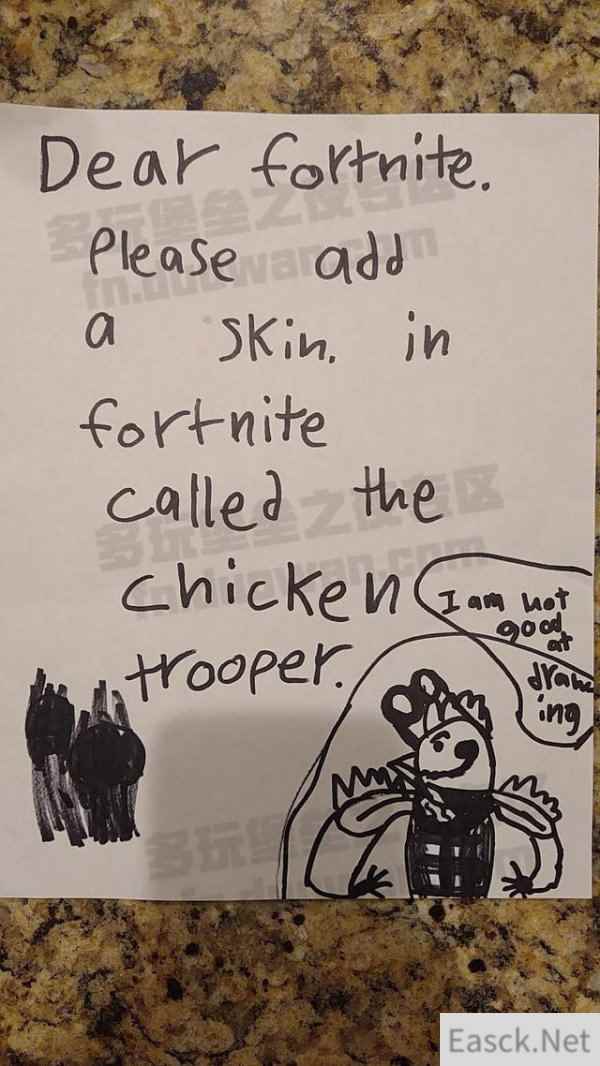 Dear fortnite.
多玩堡垒之夜专区
Please add
fn.duowan.com
a skin. in
fortnite
called the
多玩堡垒之夜专区
chicken
fn.duowan.com
trooper.
I am not
good
at
draw
ing
多玩堡垒之夜专区
fn.duowan.com
Easck.Net